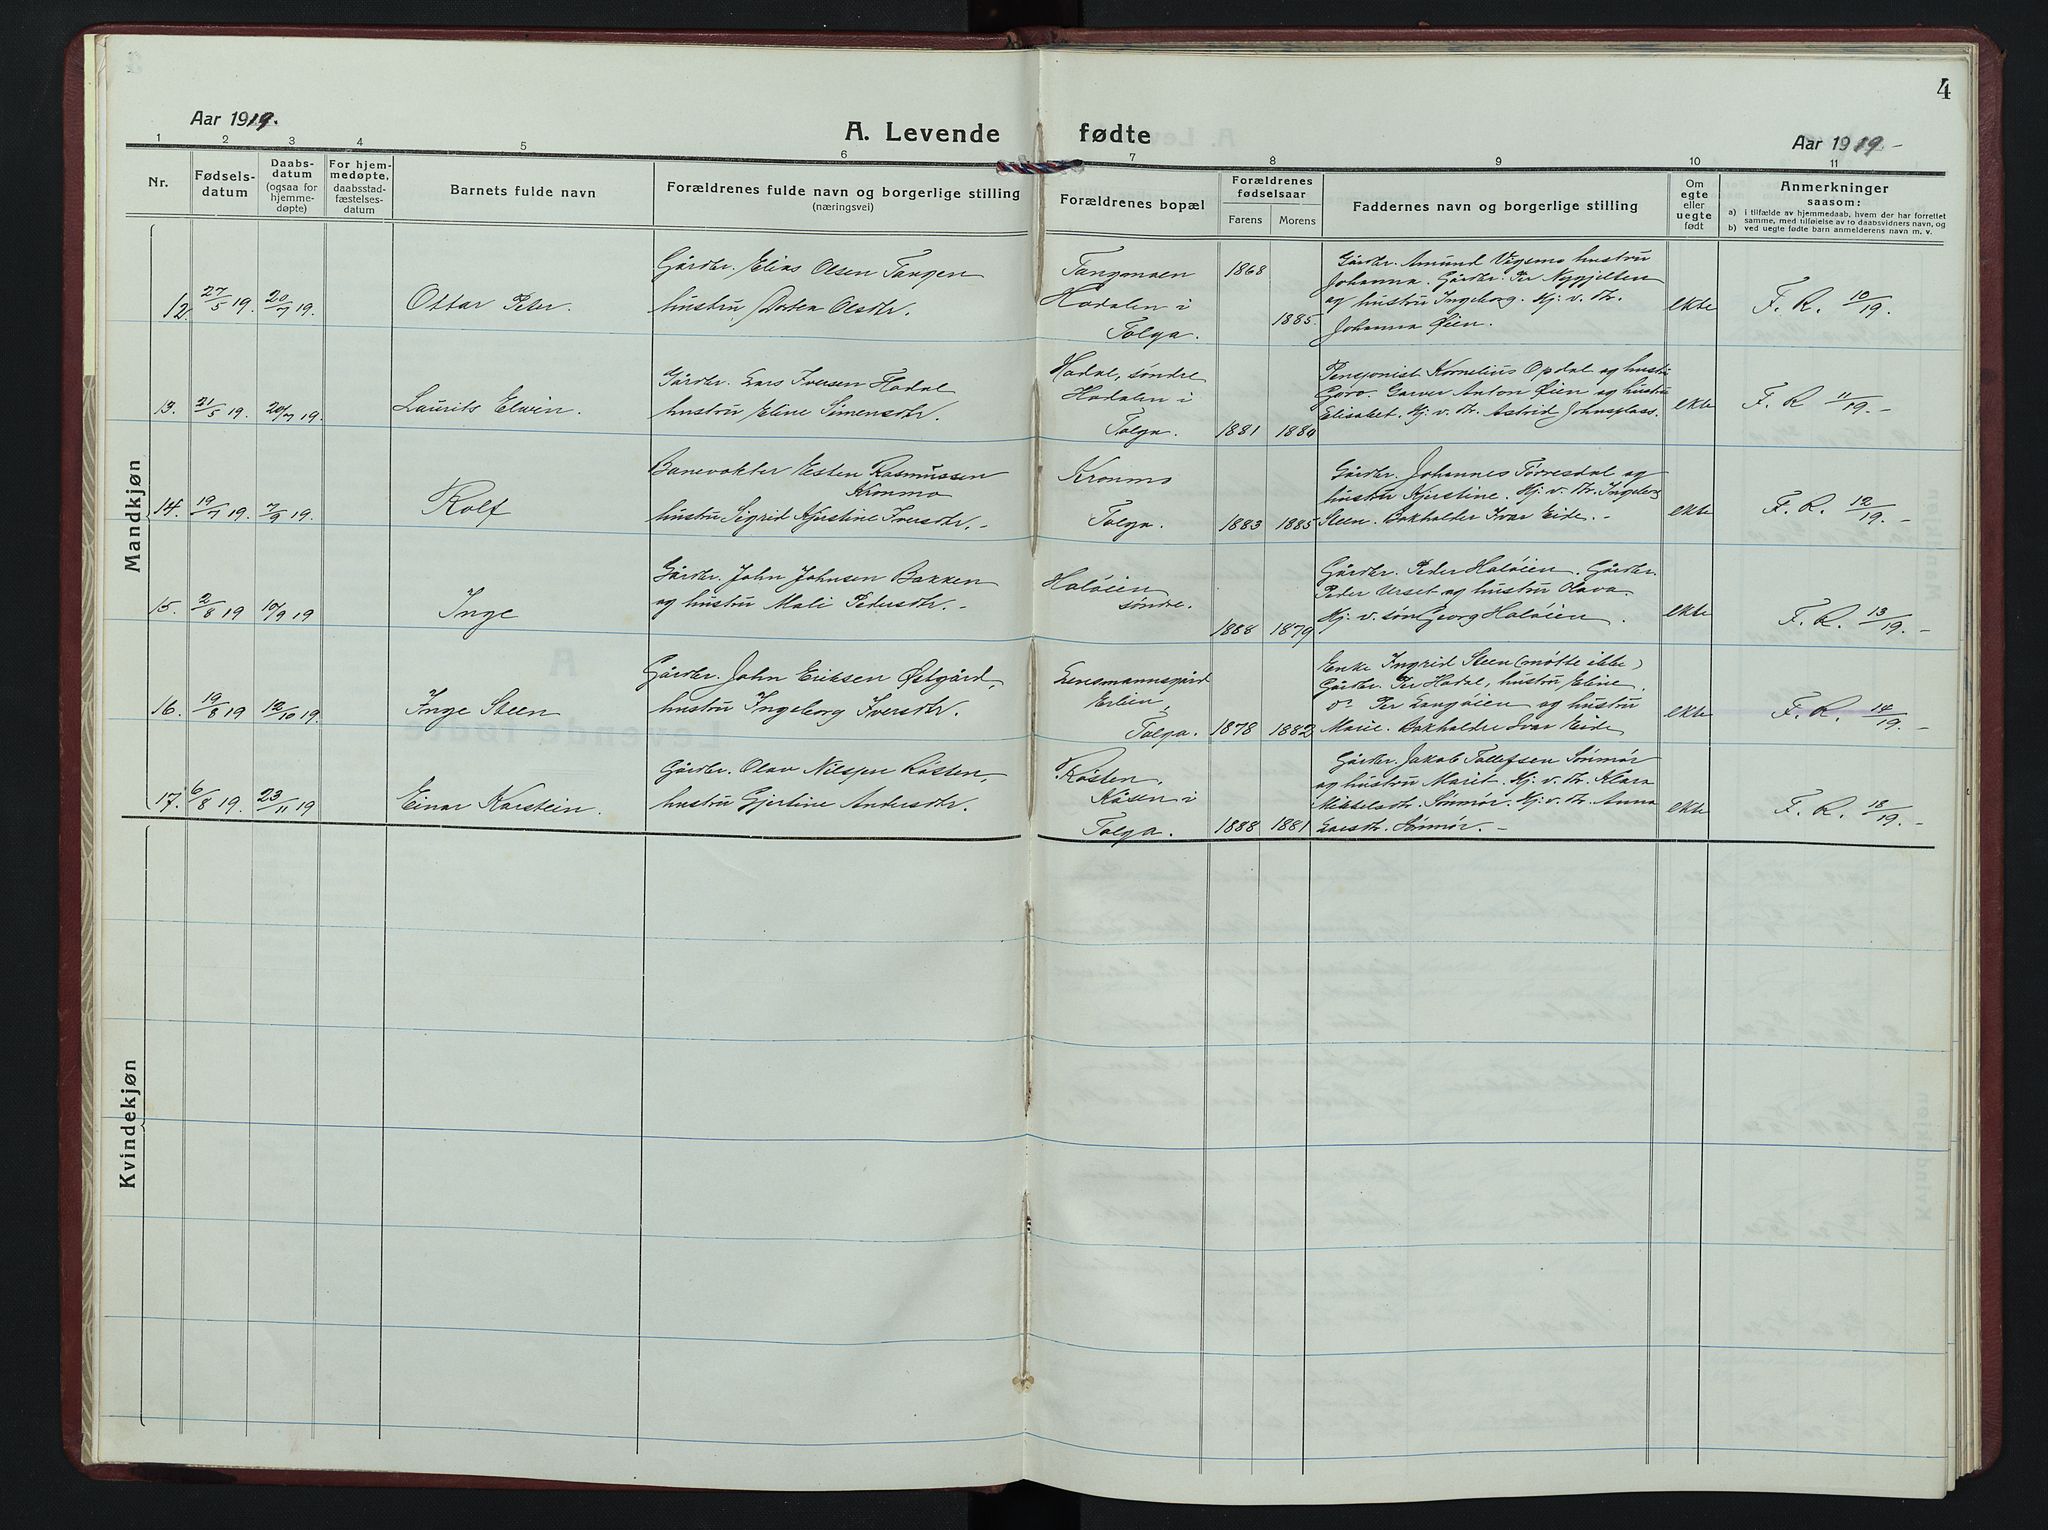 4
Aar 1919.
A. Levende fødte
Aar 1919 -
1 2 3 4 5 6 7 8 9 10 11
Nr.
Fødsels-
datum
Daabs-
datum
(ogsaa for
hjemme-
døpte)
For hjem-
medøpte,
daabsstad-
fæstelses-
datum
Barnets fulde navn
Forældrenes fulde navn og borgerlige stilling
(næringsvei)
Forældrenes bopæl
Forældrenes
fødselsaar
Farens Morens
Faddernes navn og borgerlige stilling
Om
egte
eller
uegte
født
Anmerkninger
saasom:
a) i tilfælde av hjemmedaab, hvem der har forrettet
samme, med tilføielse av to daabsvidners navn, og
b) ved uegte fødte barn anmelderens navn m. v.
Mandkjøn
12. 27/5 19. 20/7 19.
Ottar Peter.
Gårdbr. Elias Olsen Tangen
hustru Dorthea Olsdtr.
Tangmoen
Hodalen i
Tolga.
1868
1885.
Gårdbr. Amund Vigsmo hustru
Johanna. Gårdbr. Per Nygjelten
og hustru Ingeborg. Hj. v. dr.
Johanna Øien.
ekte
F. R. 10/19.
13. 21/5 19. 20/7 19.
Laurits Elvin.
Gårdbr. Lars Iversen Hodal
hustru Eline Simensdtr.
Hodal, søndre
Hodalen i
Tolga.
1881 1880
Pensjonist Kornelius Opdal og hustru
Goro. Garver Anton Øien og hustru
Elisabet. Hj. v. dr. Astrid Johnsplass.
ekte
F. R 11/19. -
14. 19/7 19. 7/9 19.
Rolf
Banevokter Esten Rasmussen
Kronmo
hustru Sigrid Kjerstine Iversdtr. -
Kronmo
Tolga.
1883 1885
Gårdbr. Johannes Torresdal og
hustru Kjerstine. Hj. v. dr. Ingeborg
Steen. Bokholder Ivar Eide. -
ekte
F. R. 12/19. -
15. 2/8 19 10/9 19
Inge
Gårdbr. John Johnsen Bakken
og hustru Mali Pedersdtr. -
Holøien
søndre.
1888 1879
Gårdbr. Peder Holøien. Gårdbr.
Peder Urset og hustru Olava.
Hj. v. søn Georg Holøien.
ekte
F. R. 13/19. -
16. 19/8 19 12/10 19.
Inge Steen
Gårdbr. John Eriksen Østgård,
hustru Ingeborg Iversdtr.
Lensmannsgård
Erlien,
Tolga.
1878 1882
Enke Ingrid Steen (møtte ikke)
Gårdbr. Per Hodal, hustru Eline.
do Per Langøien og hustru
Marie. Bokholder Ivar Eide
ekte
F. R. 14/19. -
17. 6/8 19. 23/11 19
Einar Karstein.
Gårdbr. Olav Nilssen Røsten,
hustru Gjertine Andersdtr.
Røsten,
Kåsen i
Tolga.
1888 1881
Gårdbr. Jakob Tollefsen Sønmør
og hustru Marit. Hj. v. dr. Klara
Mikkelsdtr. Sønmør. Hj. v. dr. Anna
Larsdtr. Sønmør. -
ekte
F. R. 18/19. -
Kvindekjøn